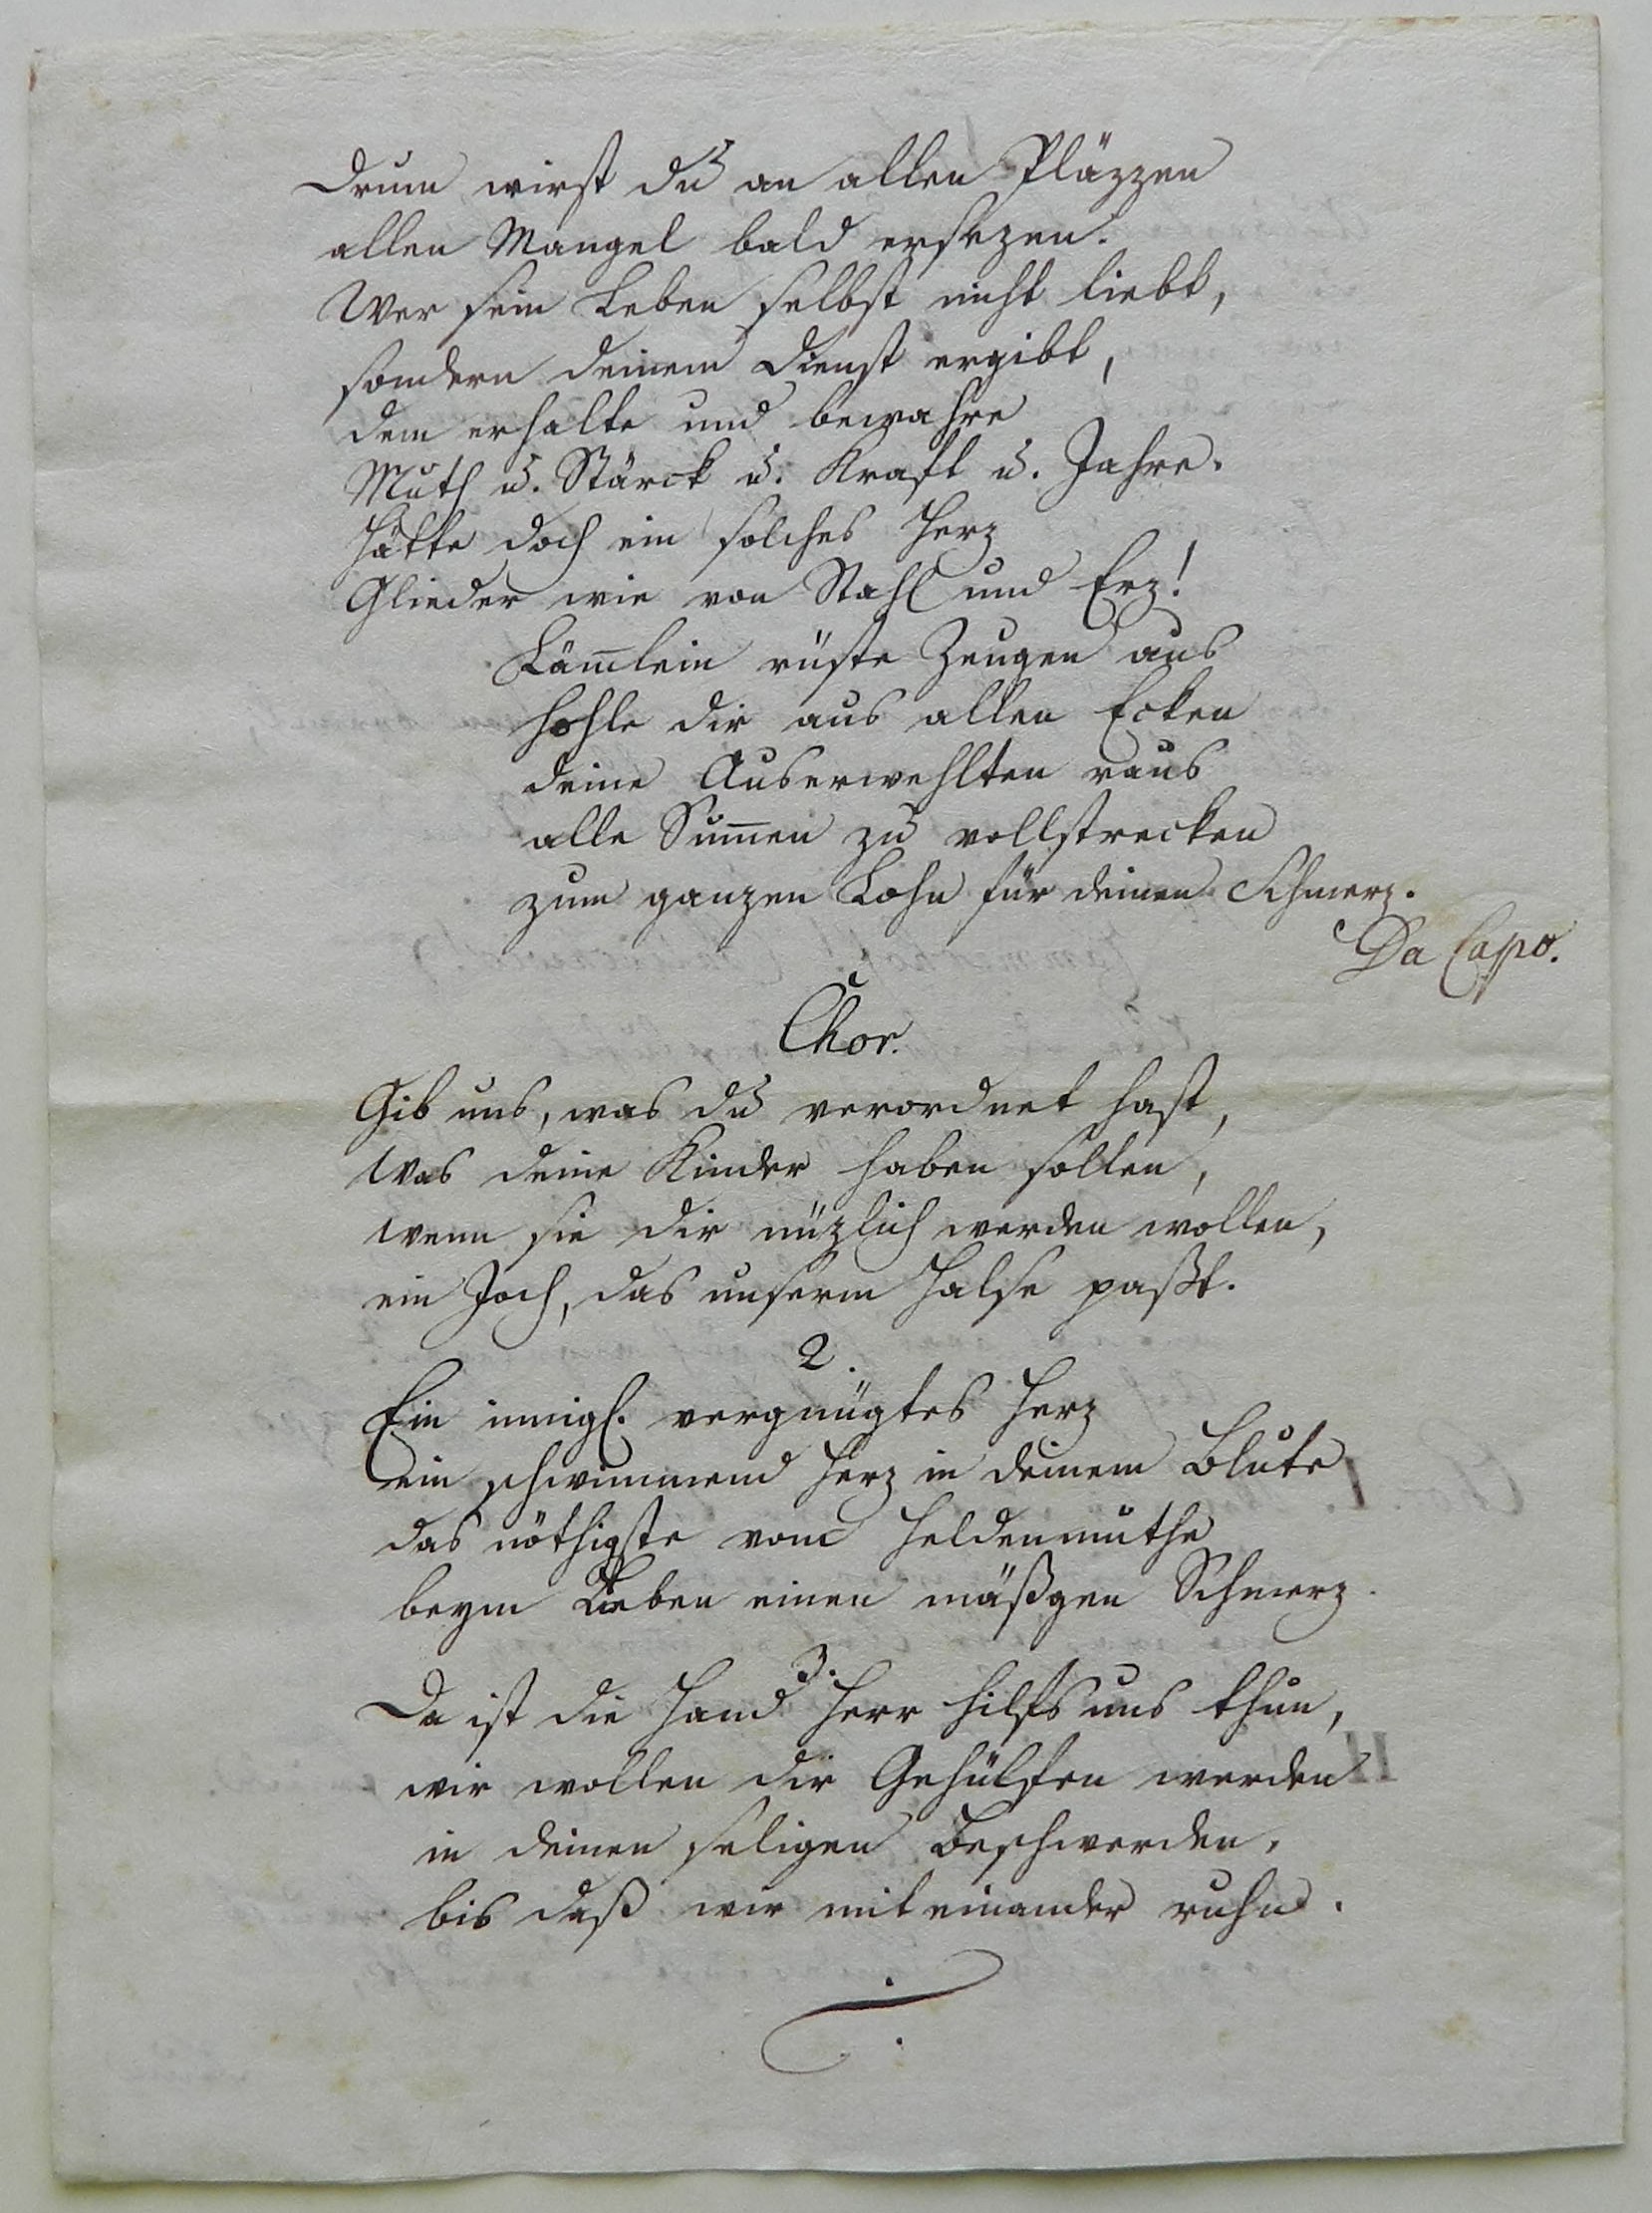 Drum wirst du an allen Pläzzen
allen Mangel bald ersezen.
Wer sein Leben selbst nicht liebt,
sondern deinem Dienst ergibt,
dem erhalte und bewahre
Muth u. Stärck u. Kraft u. Jahre.
Hätte doch ein solches Herz
Glieder wie von Stahl und Erz!
Läm̅lein rüste Zeugen aus
hohle dir aus allen Ecken
deine Auserwehlten raus
alle Sum̅en zu vollstrecken
zum ganzen Lohn für deinen Schmerz.
Da Capo.
Chor.
Gib uns, was du verordnet hast,
Was deine Kinder haben sollen,
wenn sie dir nüzlich werden wollen,
ein Joch, das unserm Halse paßt.
2.
Ein innigl. vergnügtes Herz
ein schwimmend Herz in deinem Blute
das nöthigste vom Heldenmuthe
beym Lieben einen mäßgen Schmerz.
3.
Da ist die Hand Herr hilfs uns thun,
wir wollen dir Gehülfen werden
in deinen seligen Beschwerden,
bis daß wir mit einander ruhn.